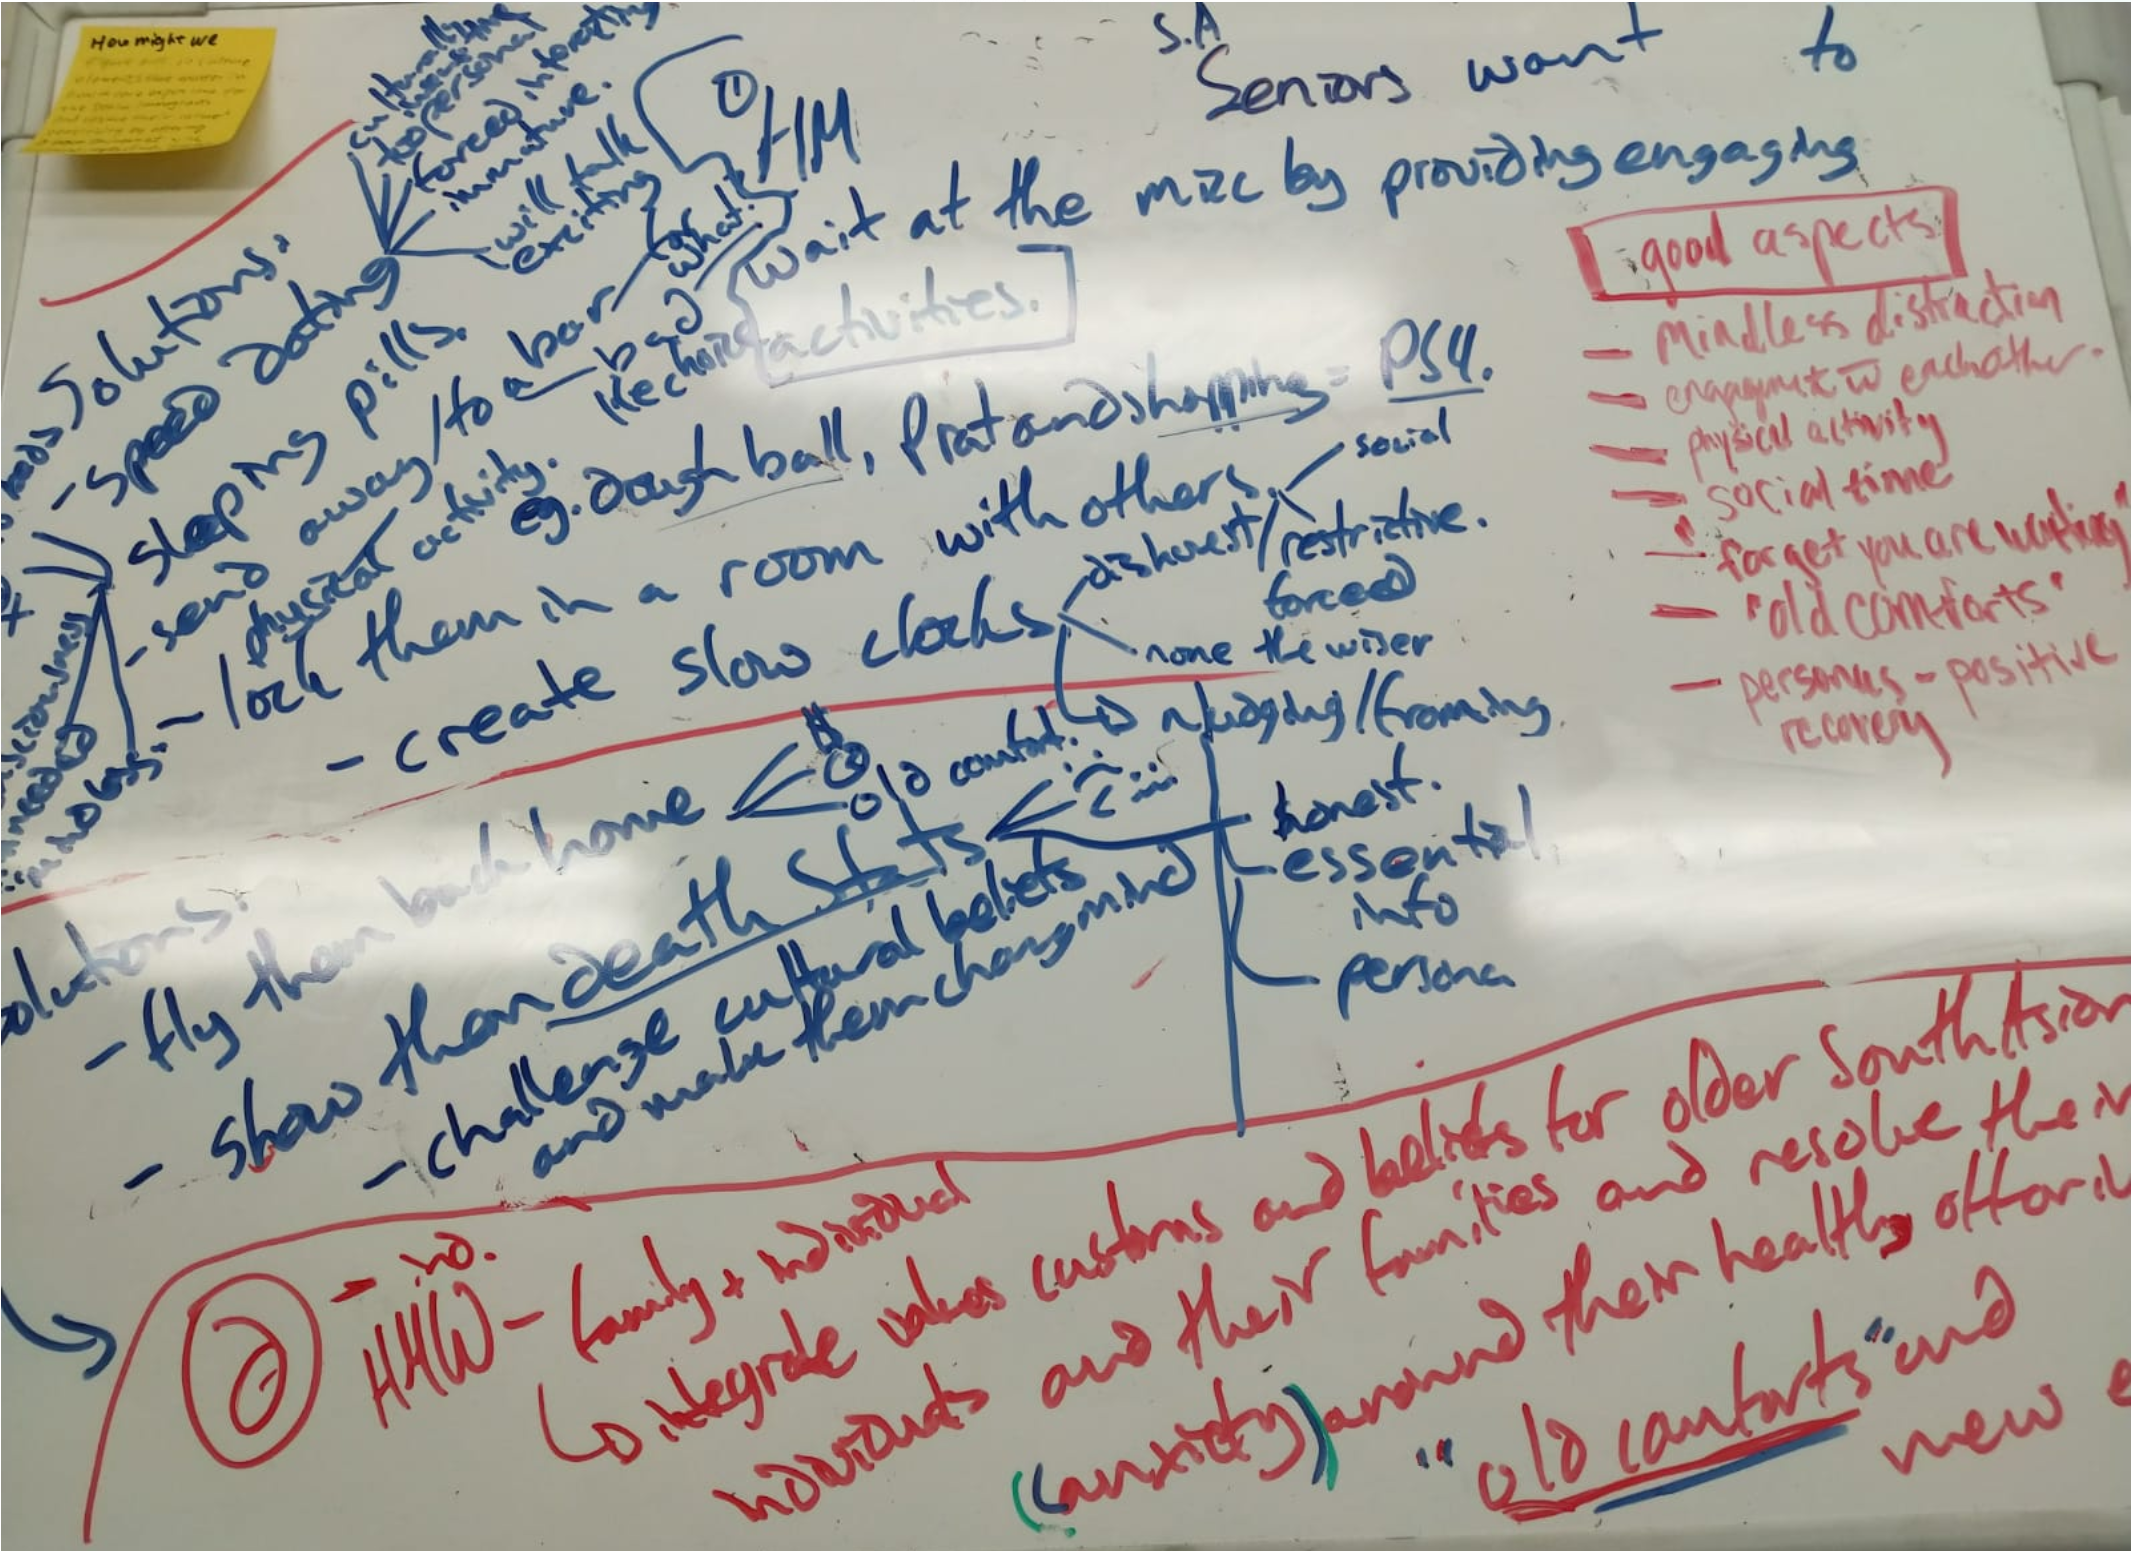 How might we
too personal
forced interacting
immature.
will talk
exciting
① HM
S.A
Seniors want to
wait at the mzc by providing engaging
activities.
Solutions:
- speed dating
sleeping pills.
- send away/to a bar/
for what?
bad
physical activity.
eg. dough ball, Prat and shopping = PS4.
- lock them in a room with others.
social
restrictive.
forced
- create slow clocks
dishonest/
none the wiser
nudging/framing
good aspects
- Mindless distraction
- engagement w eachother.
- physical activity
- social time
- "forget you are waiting"
- "old comforts"
- personas - positive
recovery
olutions:
- fly them back home
old comfort.
- show them death stats
honest.
essential
info
persona
- challenge cultural beliefs
and make them chang mind
②
- ind.
HMW - family + individual
integrate values customs and beliefs for older South Asian
individuals and their families and resolve their
(anxiety) around their health,
"old comforts" and
new